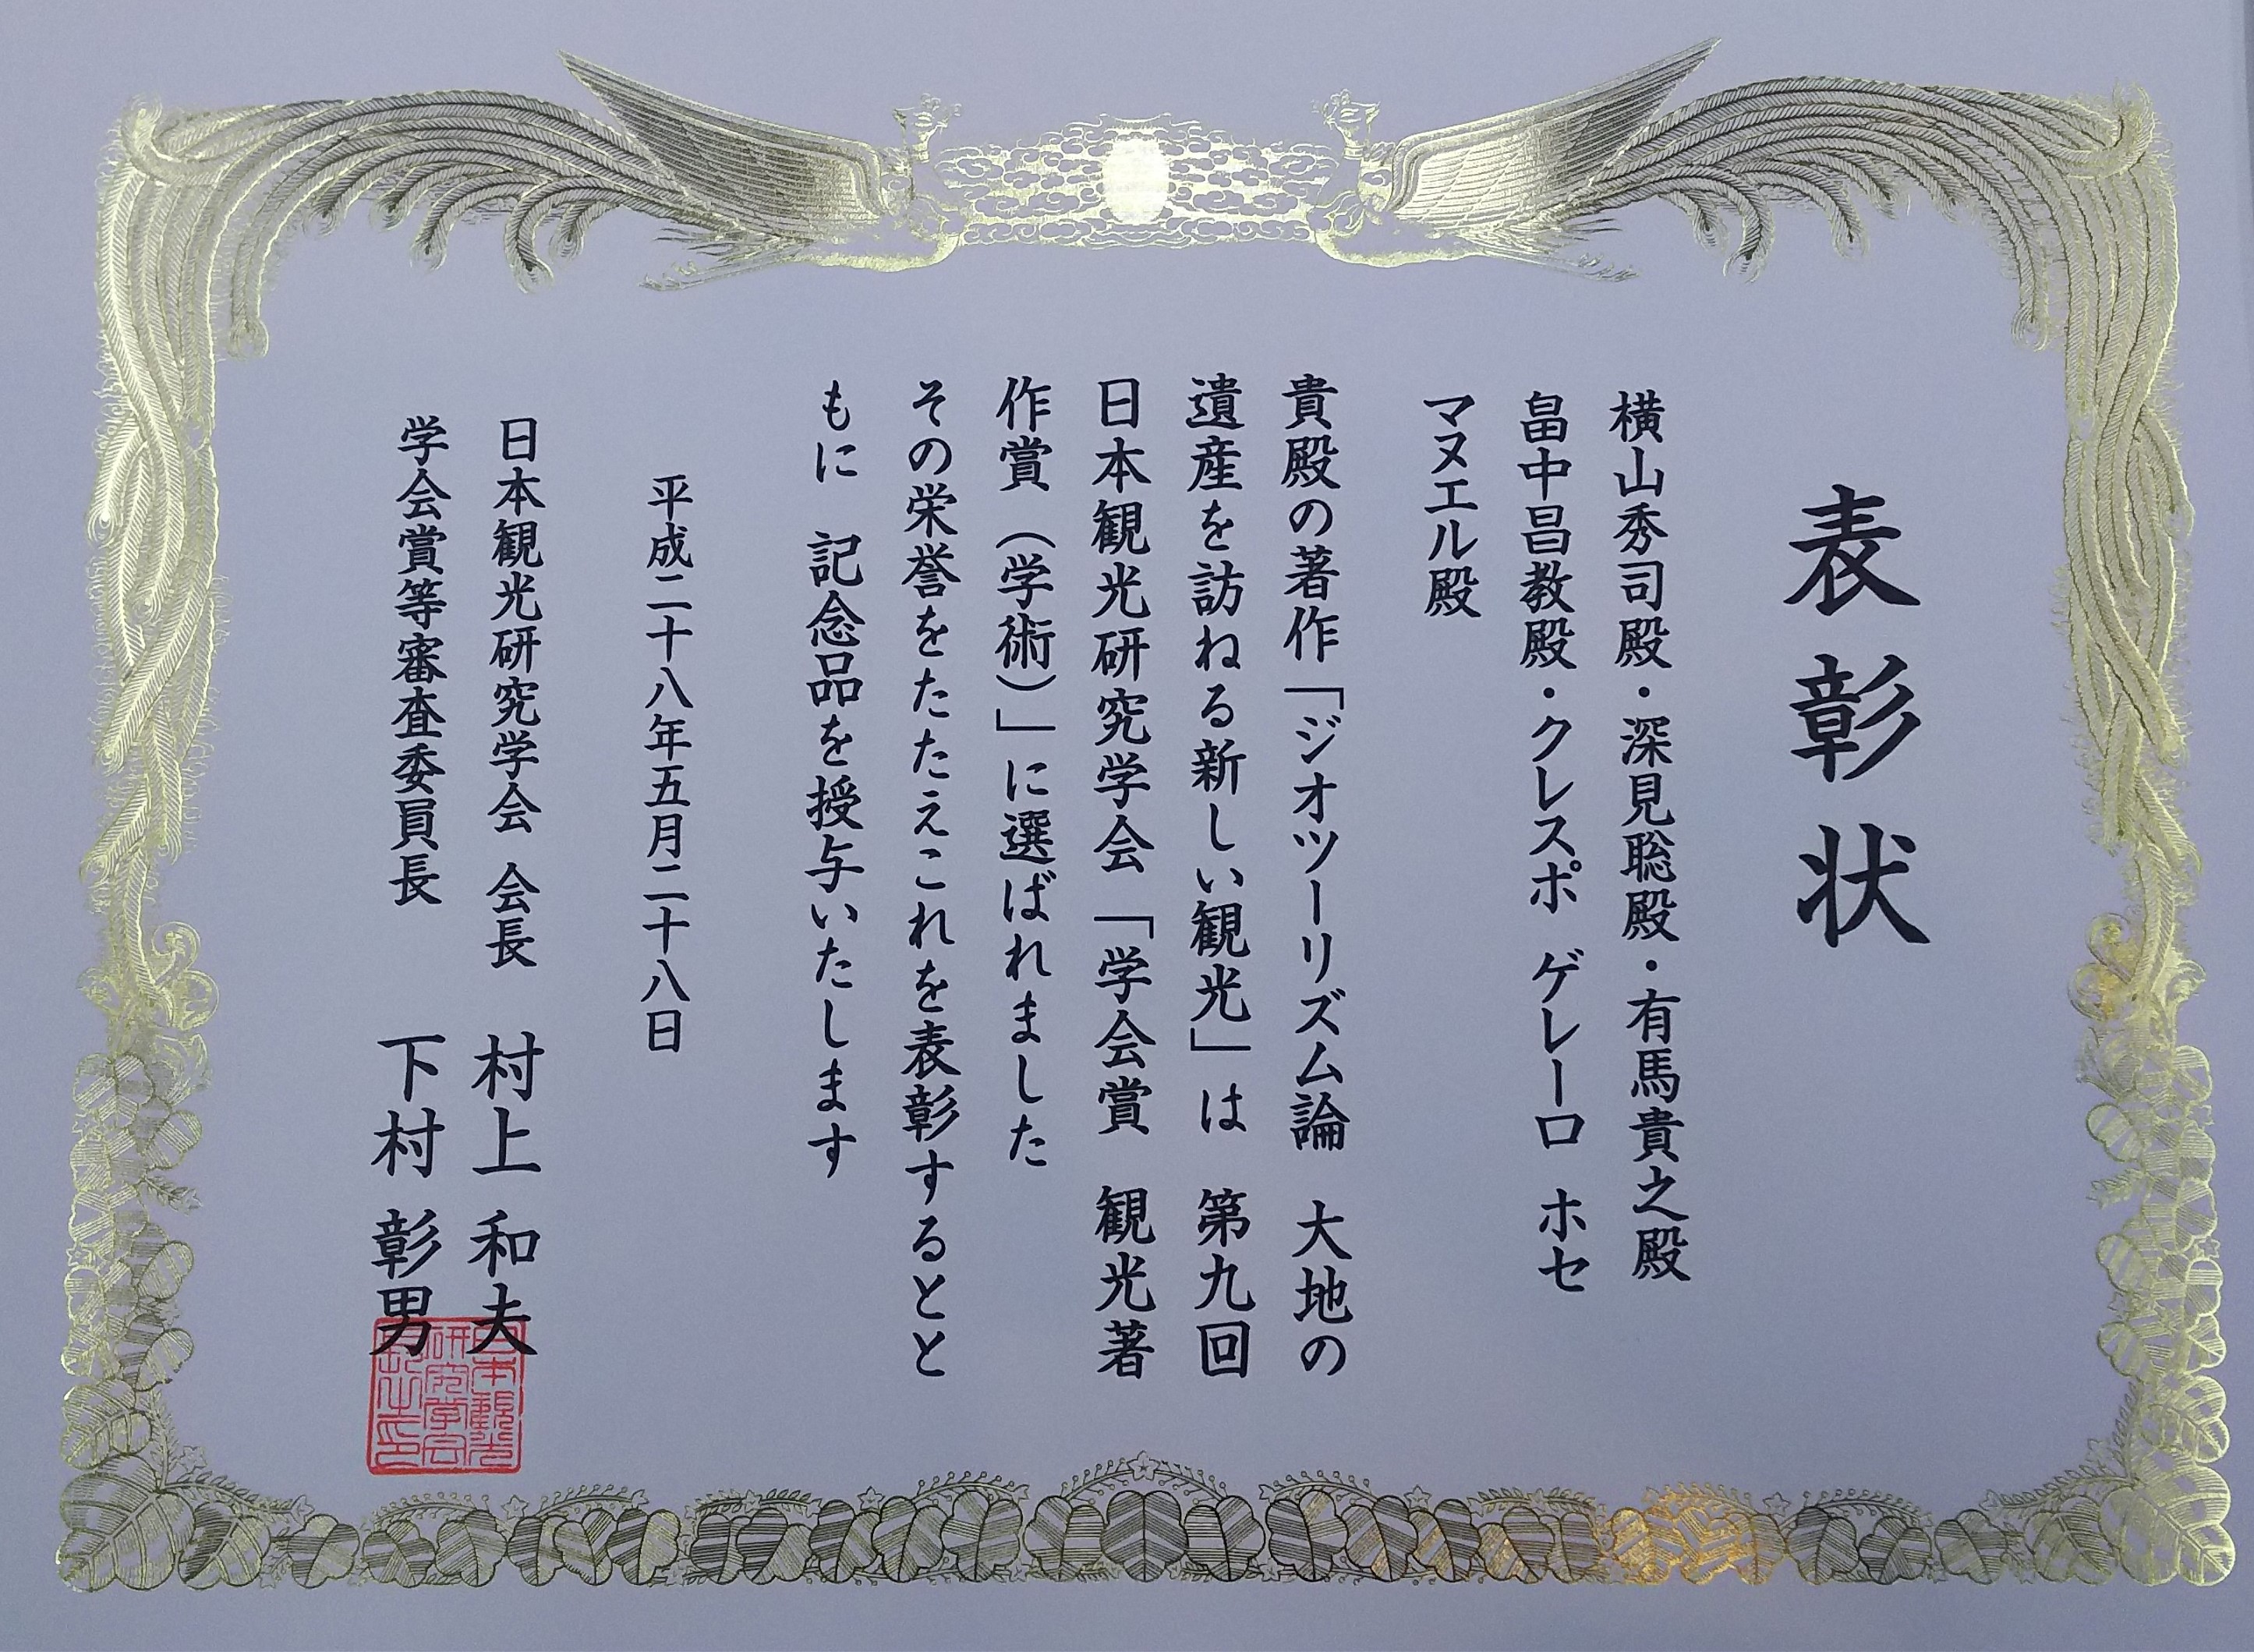 表彰状
横山秀司殿・深見聡殿・有馬貴之殿
畠中昌教殿・クレスポ ゲレーロ ホセ
マヌエル殿
貴殿の著作「ジオツーリズム論 大地の
遺産を訪ねる新しい観光」は 第九回
日本観光研究学会「学会賞 観光著
作賞（学術）」に選ばれました
その栄誉をたたえこれを表彰するとと
もに 記念品を授与いたします
平成二十八年五月二十八日
日本観光研究学会 会長 村上 和夫
学会賞等審査委員長 下村 彰男
日本観光
研究学会